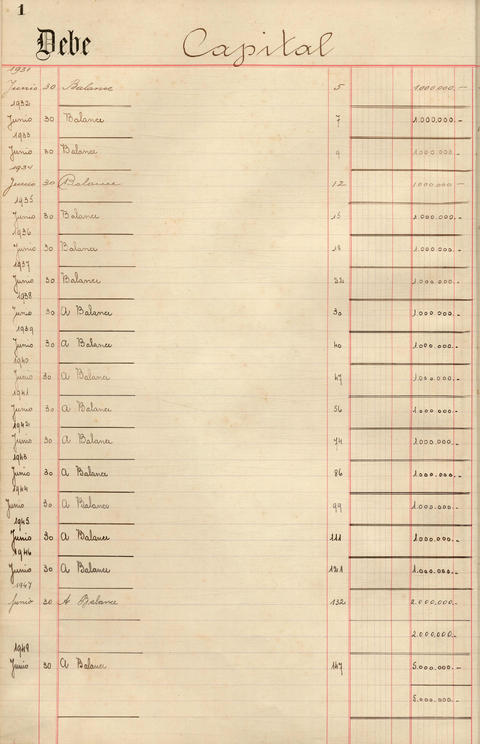 1
Debe Capital
1931
Junio 30 Balance 5 1.000.000.-
1932
Junio 30 Balance 7 1.000.000.-
1933
Junio 30 Balance 9 1.000.000.-
1934
Junio 30 Balance 12 1.000.000.-
1935
Junio 30 Balance 15 1.000.000.-
1936
Junio 30 Balance 18 1.000.000.-
1937
Junio 30 Balance 22 1.000.000.-
1938
Junio 30 A Balance 30 1.000.000.-
1939
Junio 30. A Balance 40 1.000.000.-
1940
Junio 30 A Balance 47 1.000.000.-
1941
Junio 30 A Balance 56 1.000.000.-
1942
Junio 30. A Balance 74 1.000.000.-
1943
Junio 30. A Balance 86 1.000.000.-
1944
Junio 30. A Balance 99 1.000.000.-
1945
Junio 30. A Balance 111 1.000.000.-
1946
Junio 30. A Balance 121 1.000.000.-
1947
Junio 30 A Balance 132 2.000.000.-
2.000.000.-
1948
Junio 30 A Balance 147 5.000.000.-
5.000.000.-